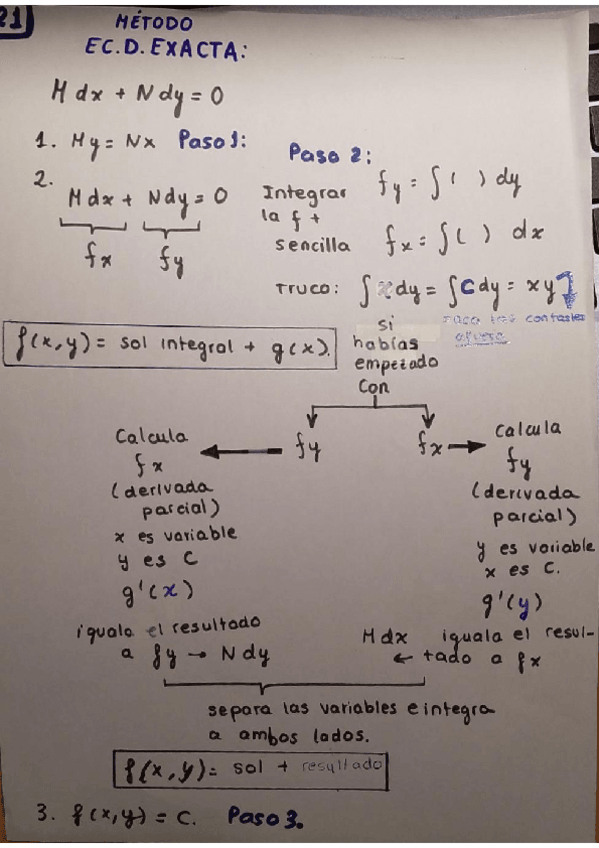 21
MÉTODO
EC.D.EXACTA:
M dx + N dy = 0
1. My = Nx Paso 1:
2. Mdx + Ndy = 0
fx fy
Paso 2:
Integrar
la f +
sencilla
fy = ∫ ( ) dy
fx = ∫ ( ) dx
TRUCO: ∫ x dy = ∫ C dy = xy
saco las
afuera
f(x,y) = sol integral + g(x).
si
habías
empezado
con
fy fx
Calcula
fx
(derivada
parcial)
x es variable
y es C
g'(x)
iguala el resultado
a fy → Ndy
calcula
fy
(derivada
parcial)
y es variable
x es C.
g'(y)
Mdx iguala el resul-
← tado a fx
separa las variables e integra
a ambos lados.
f(x,y) = sol + resultado
3. f(x,y) = C. Paso 3.